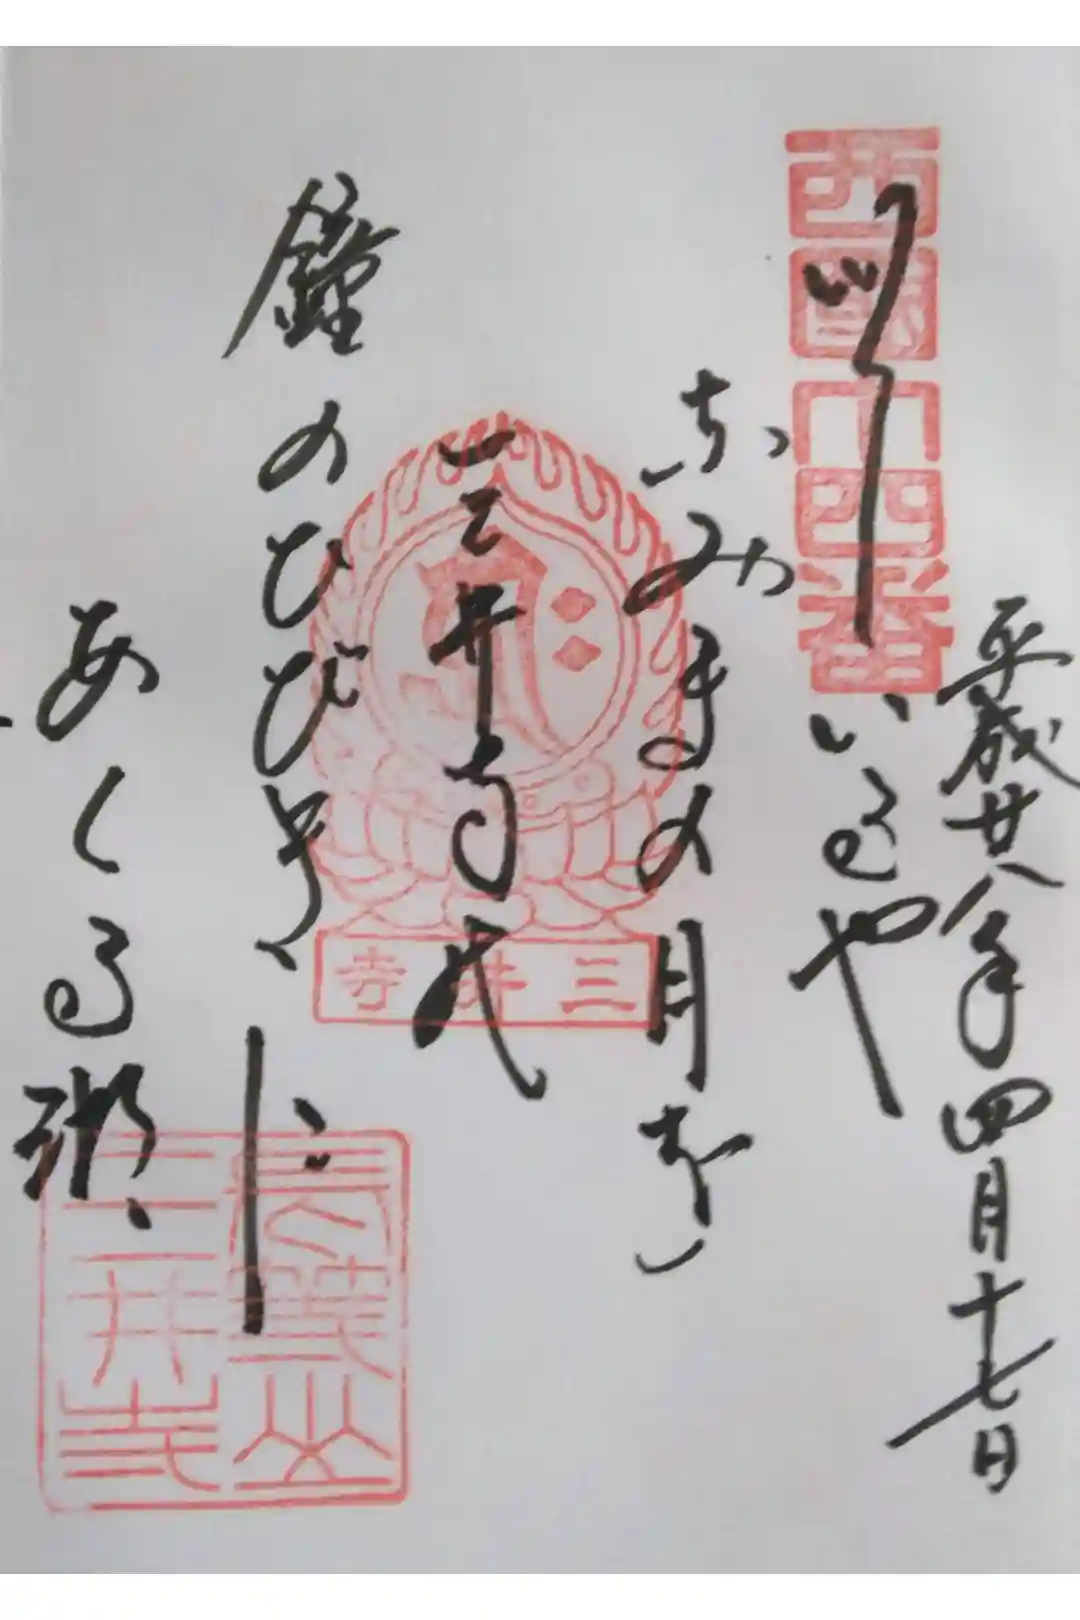 平成廿八年四月十七日
西国十四番
いでいるや
なみまの月を
三井寺の
鐘のひびきに
あくる湖
三井寺
長等山
三井寺